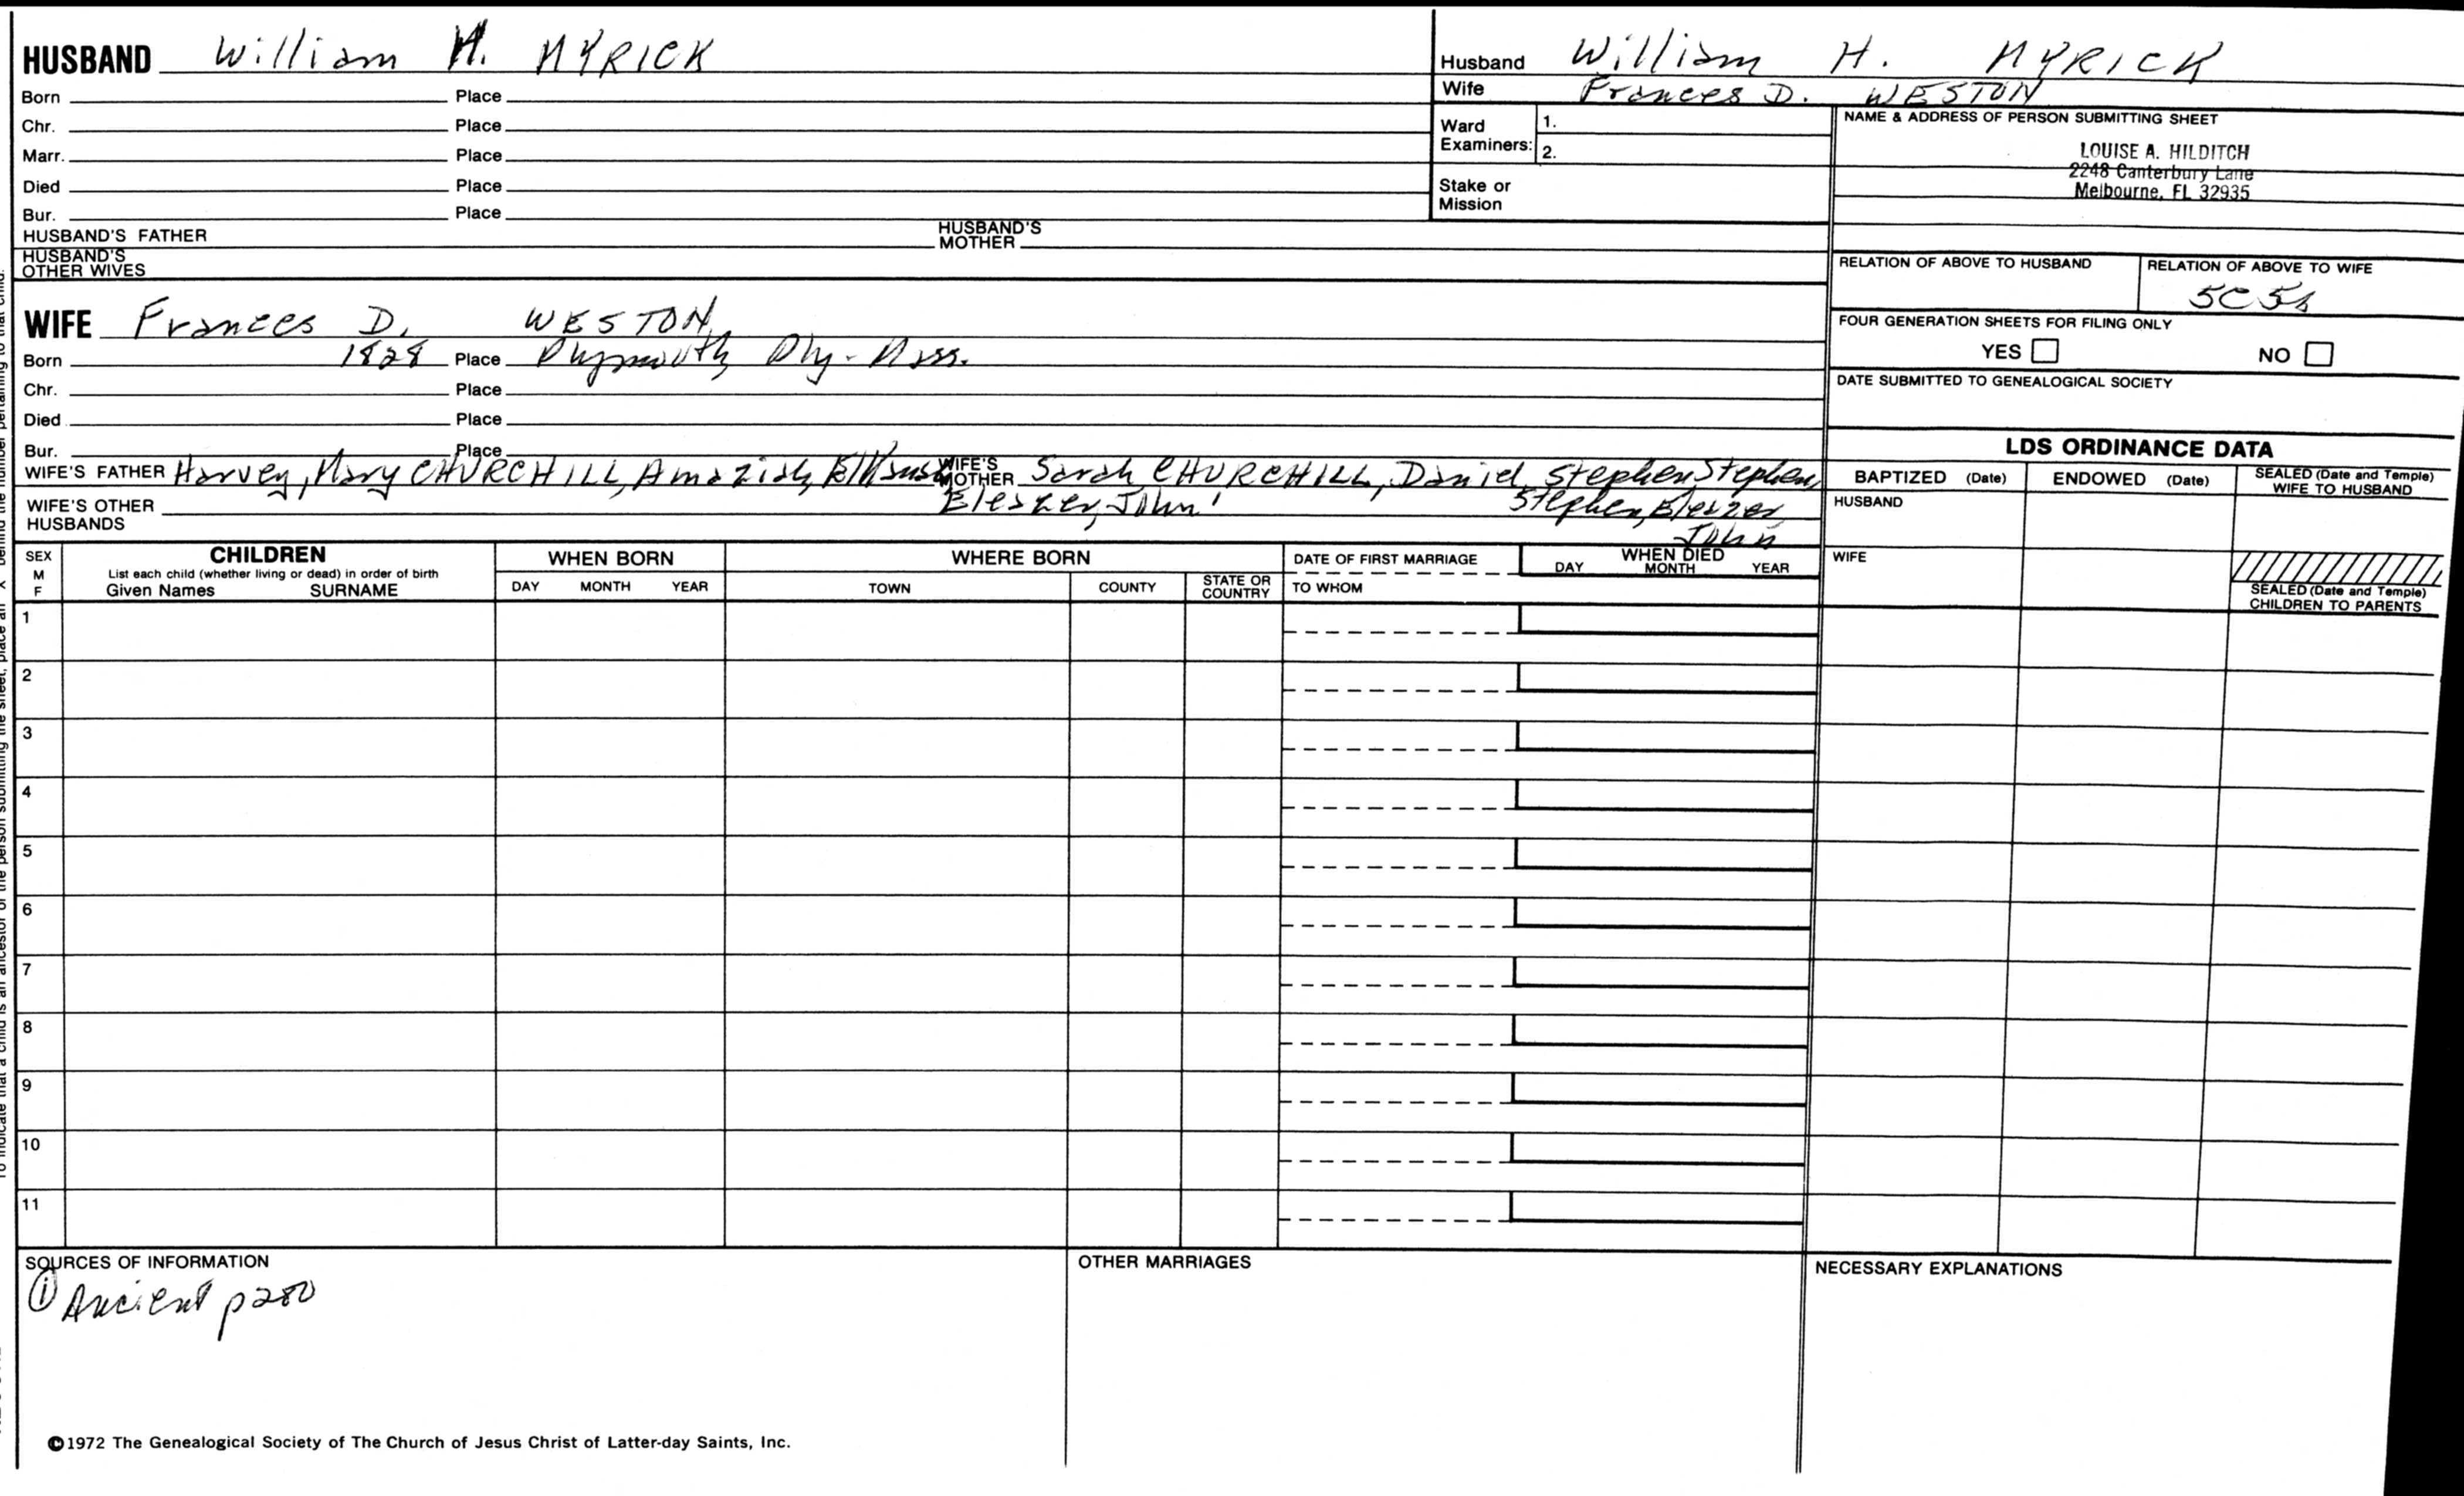 HUSBAND William H. MYRICK
Born Place
Chr. Place
Marr. Place
Died Place
Bur. Place
HUSBAND'S FATHER HUSBAND'S MOTHER
HUSBAND'S OTHER WIVES
Husband William H. MYRICK
Wife Frances D. WESTON
Ward Examiners: 1.
2.
Stake or Mission
NAME & ADDRESS OF PERSON SUBMITTING SHEET
LOUISE A. HILDITCH
2248 Canterbury Lane
Melbourne, FL 32935
RELATION OF ABOVE TO HUSBAND RELATION OF ABOVE TO WIFE
5C5
FOUR GENERATION SHEETS FOR FILING ONLY
YES NO
DATE SUBMITTED TO GENEALOGICAL SOCIETY
WIFE Frances D. WESTON
Born 1828 Place Plymouth, Ply- Mass.
Chr. Place
Died Place
Bur. Place
WIFE'S FATHER Harvey, Mary CHURCHILL, Amaziah, Elkanah WIFE'S MOTHER Sarah CHURCHILL, Daniel, Stephen, Stephen,
Eleazer, John Stephen, Eleazer,
John
WIFE'S OTHER HUSBANDS
LDS ORDINANCE DATA
BAPTIZED (Date) ENDOWED (Date) SEALED (Date and Temple) WIFE TO HUSBAND
HUSBAND
WIFE
SEALED (Date and Temple) CHILDREN TO PARENTS
SEX M F
CHILDREN
List each child (whether living or dead) in order of birth
Given Names SURNAME
WHEN BORN
DAY MONTH YEAR
WHERE BORN
TOWN COUNTY STATE OR COUNTRY
DATE OF FIRST MARRIAGE
TO WHOM
WHEN DIED
DAY MONTH YEAR
1
2
3
4
5
6
7
8
9
10
11
SOURCES OF INFORMATION
① Ancient p280
OTHER MARRIAGES
NECESSARY EXPLANATIONS
©1972 The Genealogical Society of The Church of Jesus Christ of Latter-day Saints, Inc.